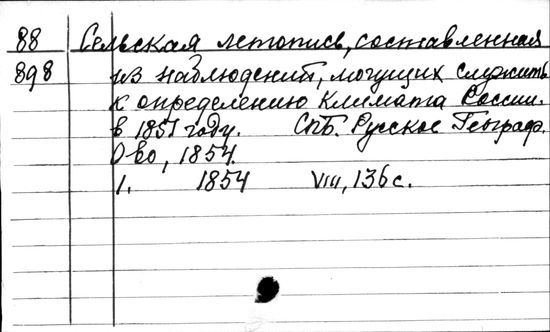 88 Сельская летопись, составленная
898 из наблюдений, могущих служить
к определению климата России.
в 1851 году. СПБ. Русское Географ.
О-во, 1854.
1. 1854 VIII, 136 с.